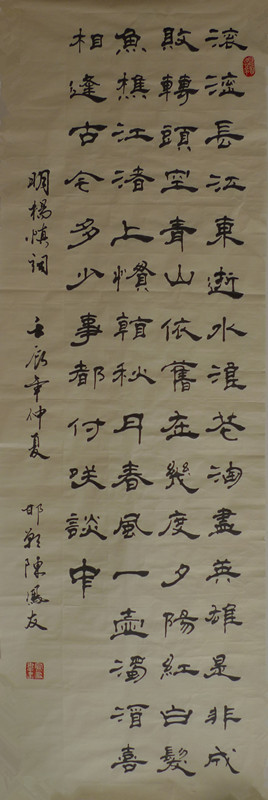 滾滾長江東逝水浪花淘盡英雄是非成
敗轉頭空青山依舊在幾度夕陽紅白髮
魚樵江渚上慣看秋月春風一壺濁酒喜
相逢古今多少事都付咲談中
明楊慎詞 壬辰年仲夏 邯鄲陳鳳友